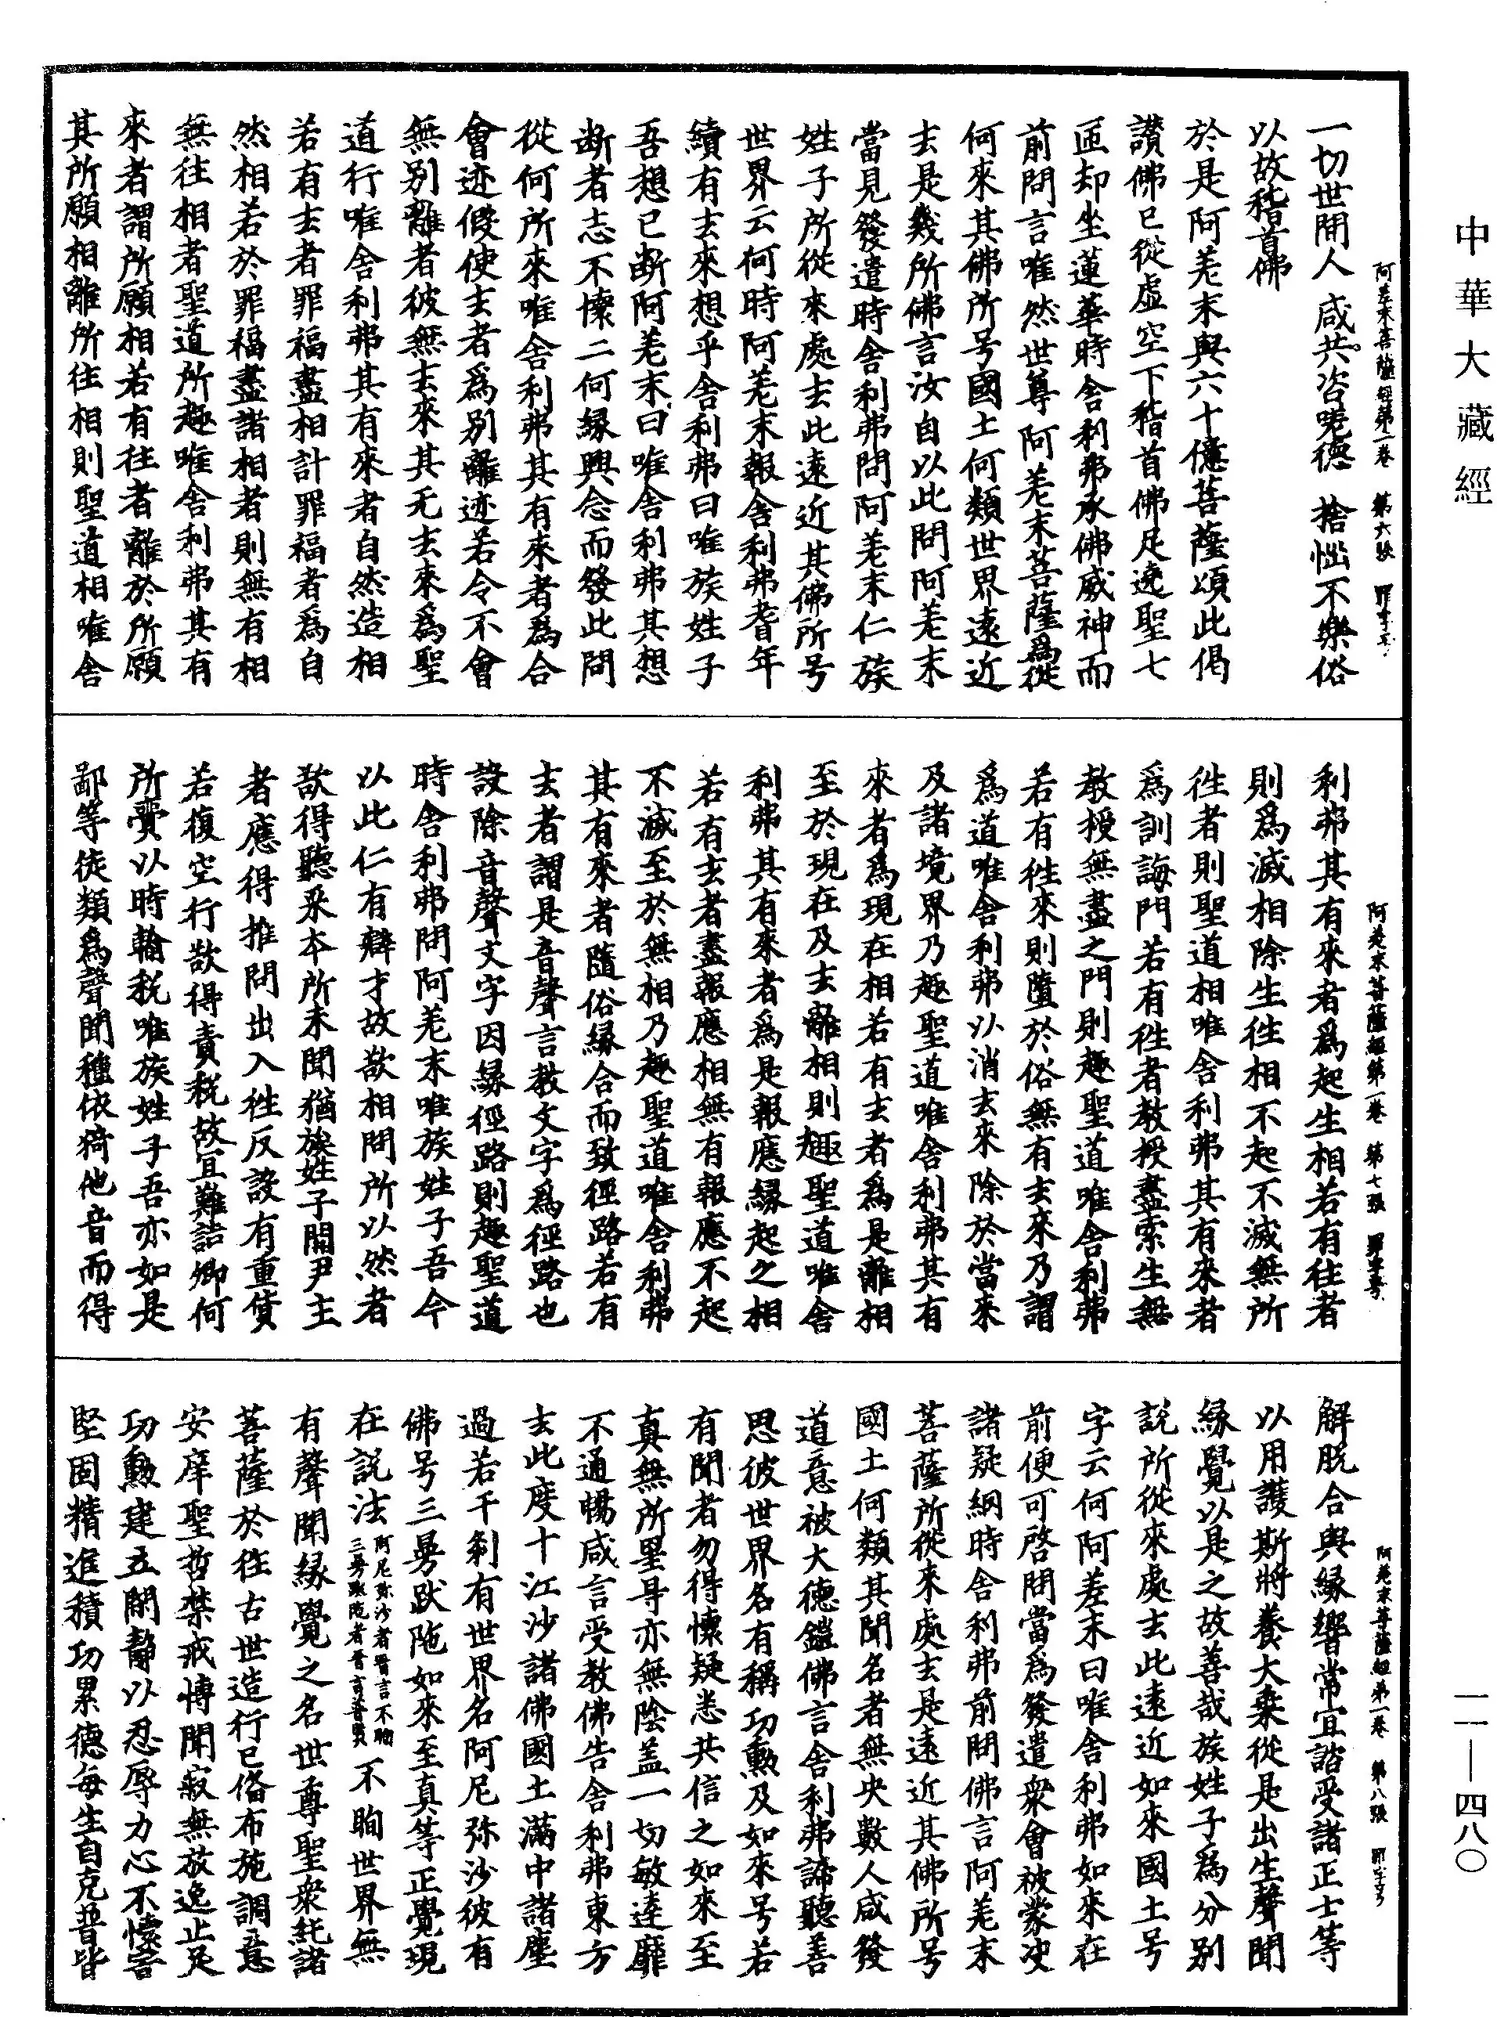 中華大藏經
一一—四八〇
阿差末菩薩經第一卷　第六張　罪字号
一切世間人　咸共咨嗟德　捨惱不樂俗
以故稽首佛
於是阿差末與六十億菩薩頌此偈
讃佛已從虛空下稽首佛足遶聖七
匝却坐蓮華時舍利弗承佛威神而
前問言唯然世尊阿差末菩薩爲從
何來其佛所号國土何類世界遠近
去是幾所佛言汝自以此問阿差末
當見發遣時舍利弗問阿差末仁族
姓子所從來處去此遠近其佛所号
世界云何時阿差末報舍利弗耆年
續有去來想乎舍利弗曰唯族姓子
吾想已斷阿差末曰唯舍利弗其想
斷者志不懷二何緣興念而發此問
從何所來唯舍利弗其有來者爲合
會迹假使去者爲別離迹若令不會
無別離者彼無去來其无去來爲聖
道行唯舍利弗其有來者自然造相
若有去者罪福盡相計罪福者爲自
然相若於罪福盡諸相者則無有相
無往相者聖道所趣唯舍利弗其有
來者謂所願相若有往者離於所願
其所願相離所往相則聖道相唯舍
阿差末菩薩經第一卷　第七張　罪字号
利弗其有來者爲起生相若有往者
則爲滅相除生往相不起不滅無所
往者則聖道相唯舍利弗其有來者
爲訓誨門若有往者教授盡索生無
教授無盡之門則趣聖道唯舍利弗
若有往來則墮於俗無有去來乃謂
爲道唯舍利弗以消去來除於當來
及諸境界乃趣聖道唯舍利弗其有
來者爲現在相若有去者爲是離相
至於現在及去離相則趣聖道唯舍
利弗其有來者爲是報應緣起之相
若有去者盡報應相無有報應不起
不滅至於無相乃趣聖道唯舍利弗
其有來者隨俗緣合而致徑路若有
去者謂是音聲言教文字爲徑路也
設除音聲文字因緣徑路則趣聖道
時舍利弗問阿差末唯族姓子吾今
以此仁有辯才故欲相問所以然者
欲得聽采本所未聞猶族姓子關尹主
者應得推問出入往反設有重貨
若復空行欲得責稅故宜難詰卿何
所賷以時輸稅唯族姓子吾亦如是
鄙等徒類爲聲聞種依猗他音而得
阿差末菩薩經第一卷　第八張　罪字号
解脫合與緣響常宜諮受諸正士等
以用護斯將養大乘從是出生聲聞
緣覺以是之故善哉族姓子爲分別
說所從來處去此遠近如來國土号
字云何阿差末曰唯舍利弗如來在
前便可啓問當爲發遣衆會被蒙决
諸疑網時舍利弗前問佛言阿差末
菩薩所從來處去是遠近其佛所号
國土何類其聞名者無央數人咸發
道意被大德鎧佛言舍利弗諦聽善
思彼世界名有稱功勳及如來号若
有聞者勿得懷疑悉共信之如來至
真無所罣㝵亦無陰盖一切敏達靡
不通暢咸言受教佛告舍利弗東方
去此度十江沙諸佛國土滿中諸塵
過若干刹有世界名阿尼弥沙彼有
佛号三曼跋陁如來至真等正覺現
在說法阿尼弥沙者晋言不眴三曼跋陁者晋言普賢不眴世界無
有聲聞緣覺之名世尊聖衆純諸
菩薩於往古世造行已俻布施調意
安庠聖哲禁戒博聞寂無放逸止足
功勳建立閑靜以忍辱力心不懷害
堅固精進積功累德每生自克普皆